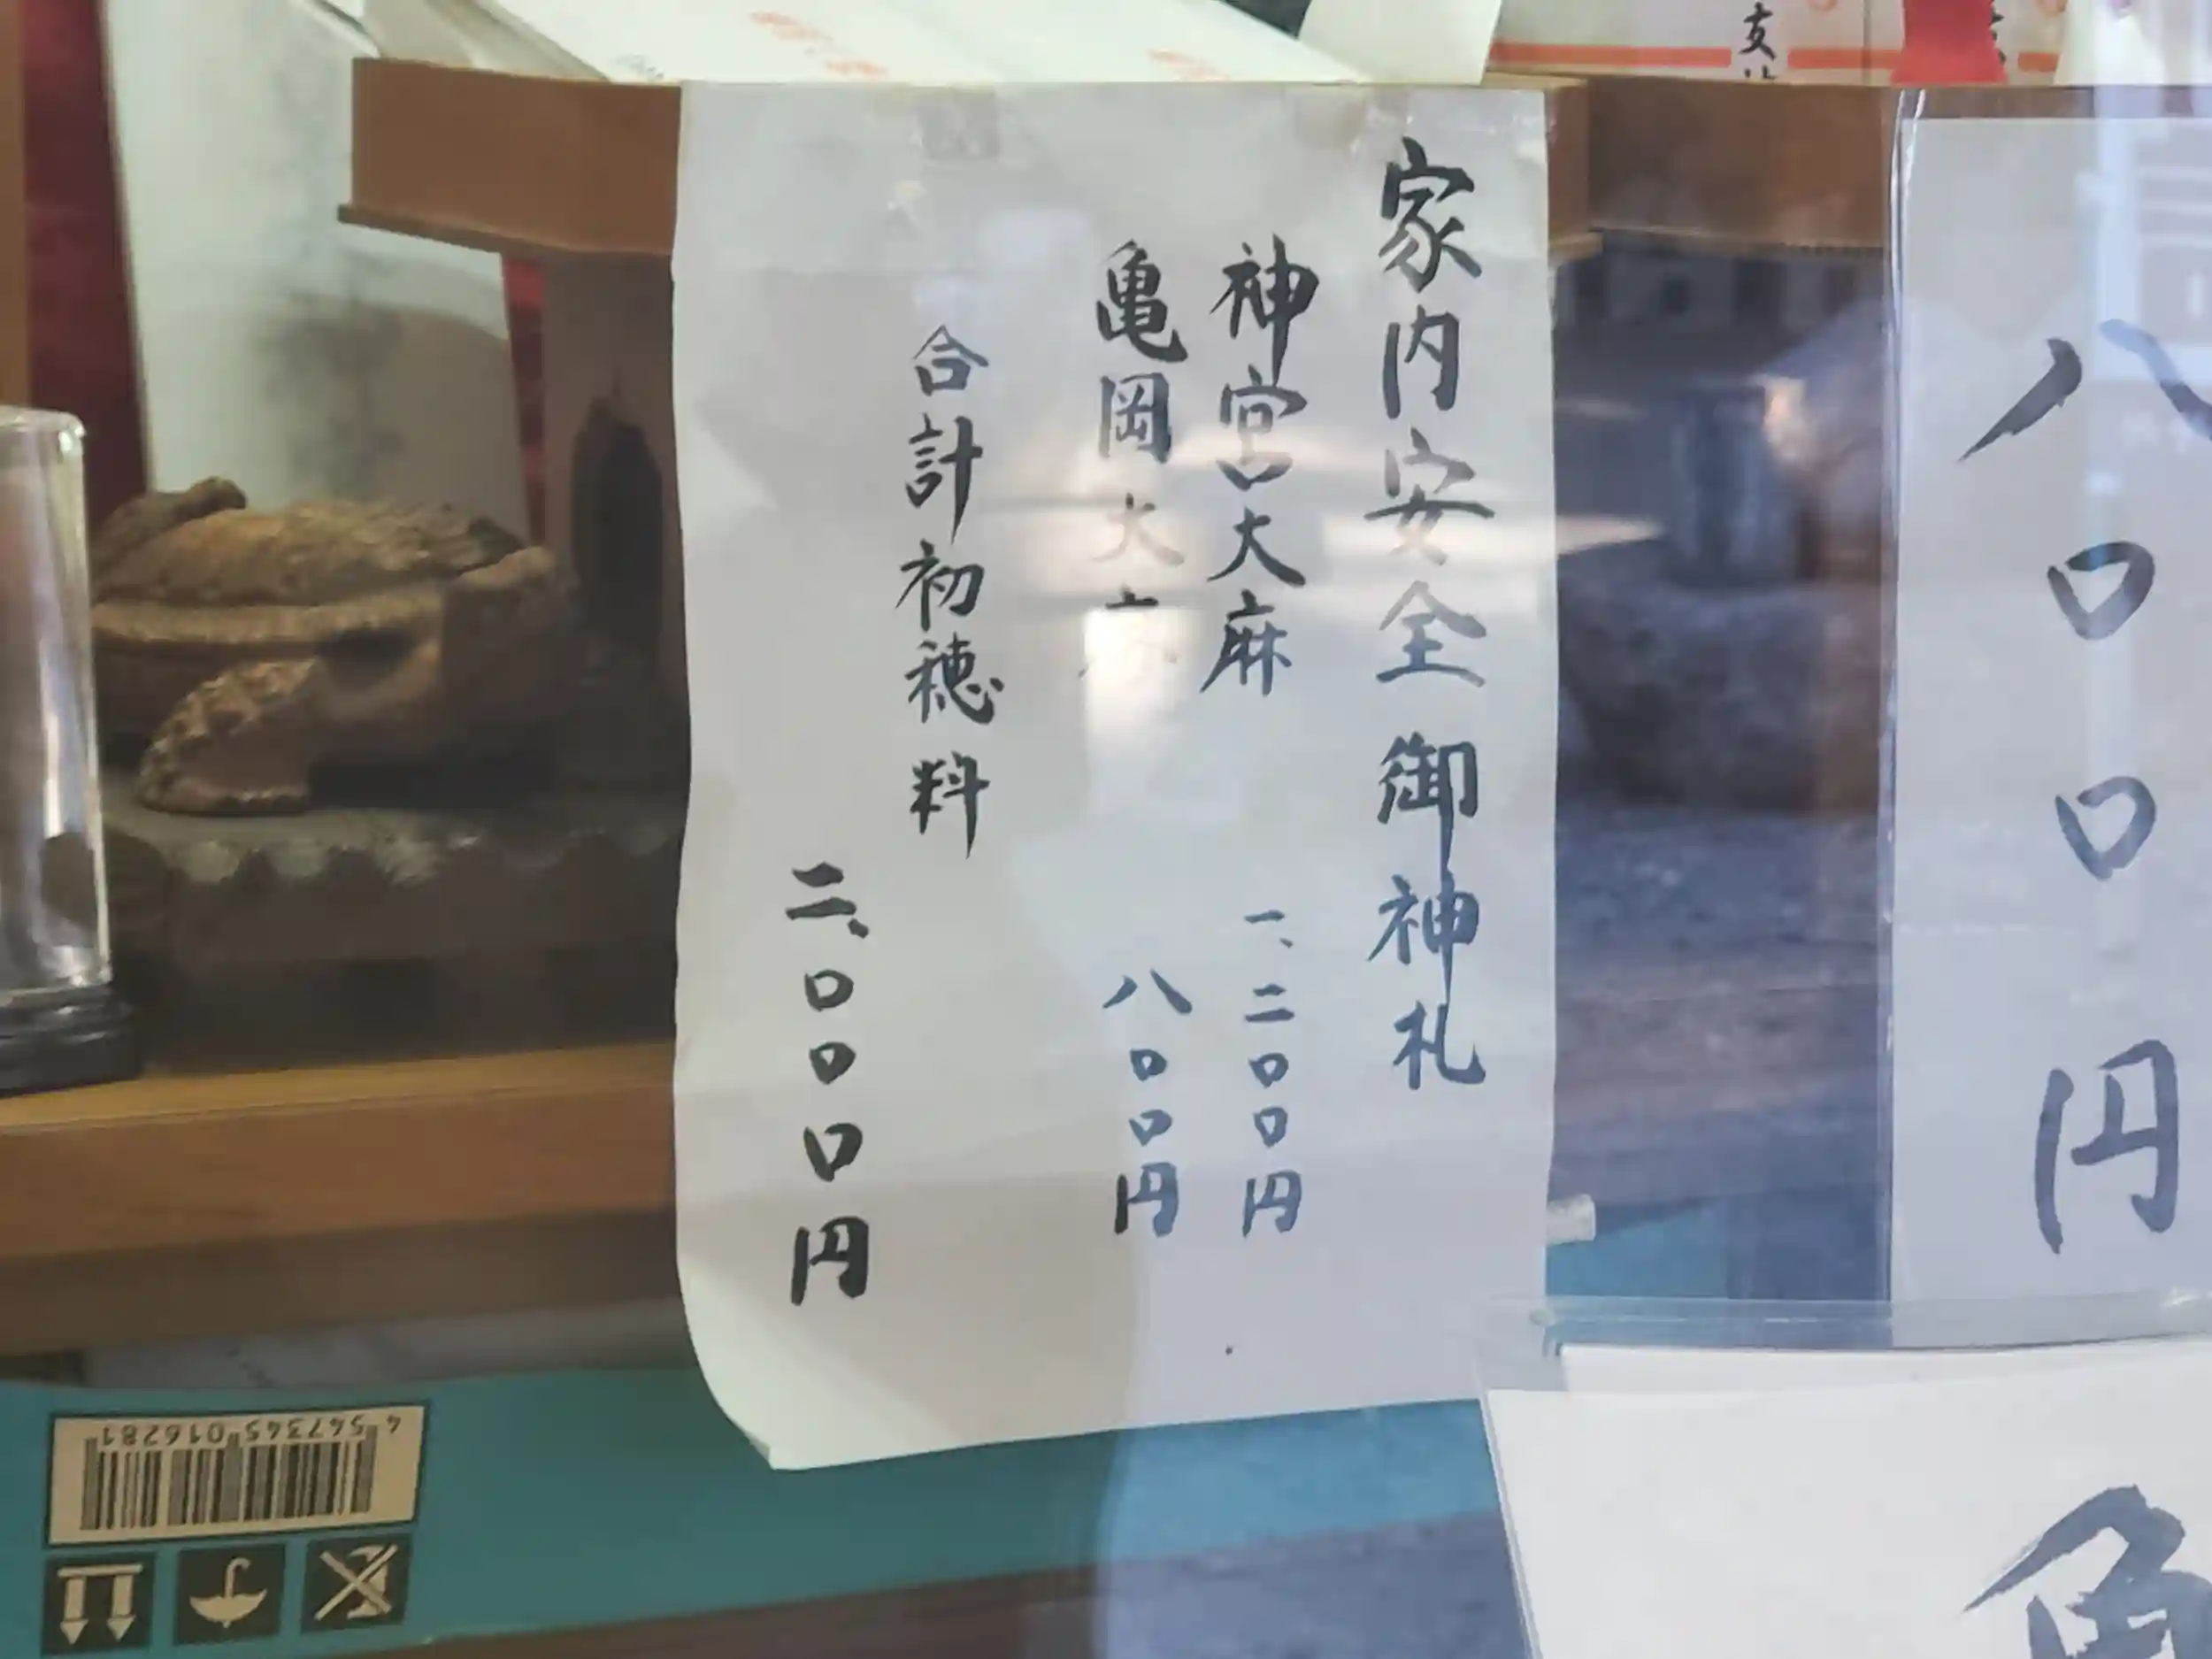 家内安全御神札
神宮大麻 一、二〇〇円
亀岡大麻 八〇〇円
合計初穂料
二、〇〇〇円
八〇〇円
支
4 547345 016281